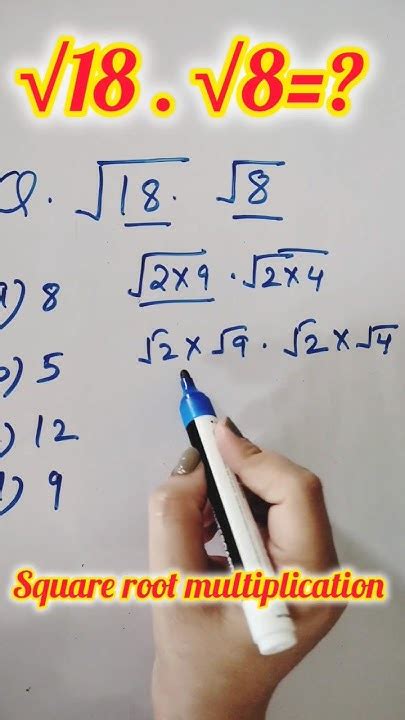 √18 . √8=?
Q. √18 . √8
a) 8
b) 5
c) 12
d) 9
√2×9 . √2×4
√2 × √9 . √2 × √4
Square root multiplication